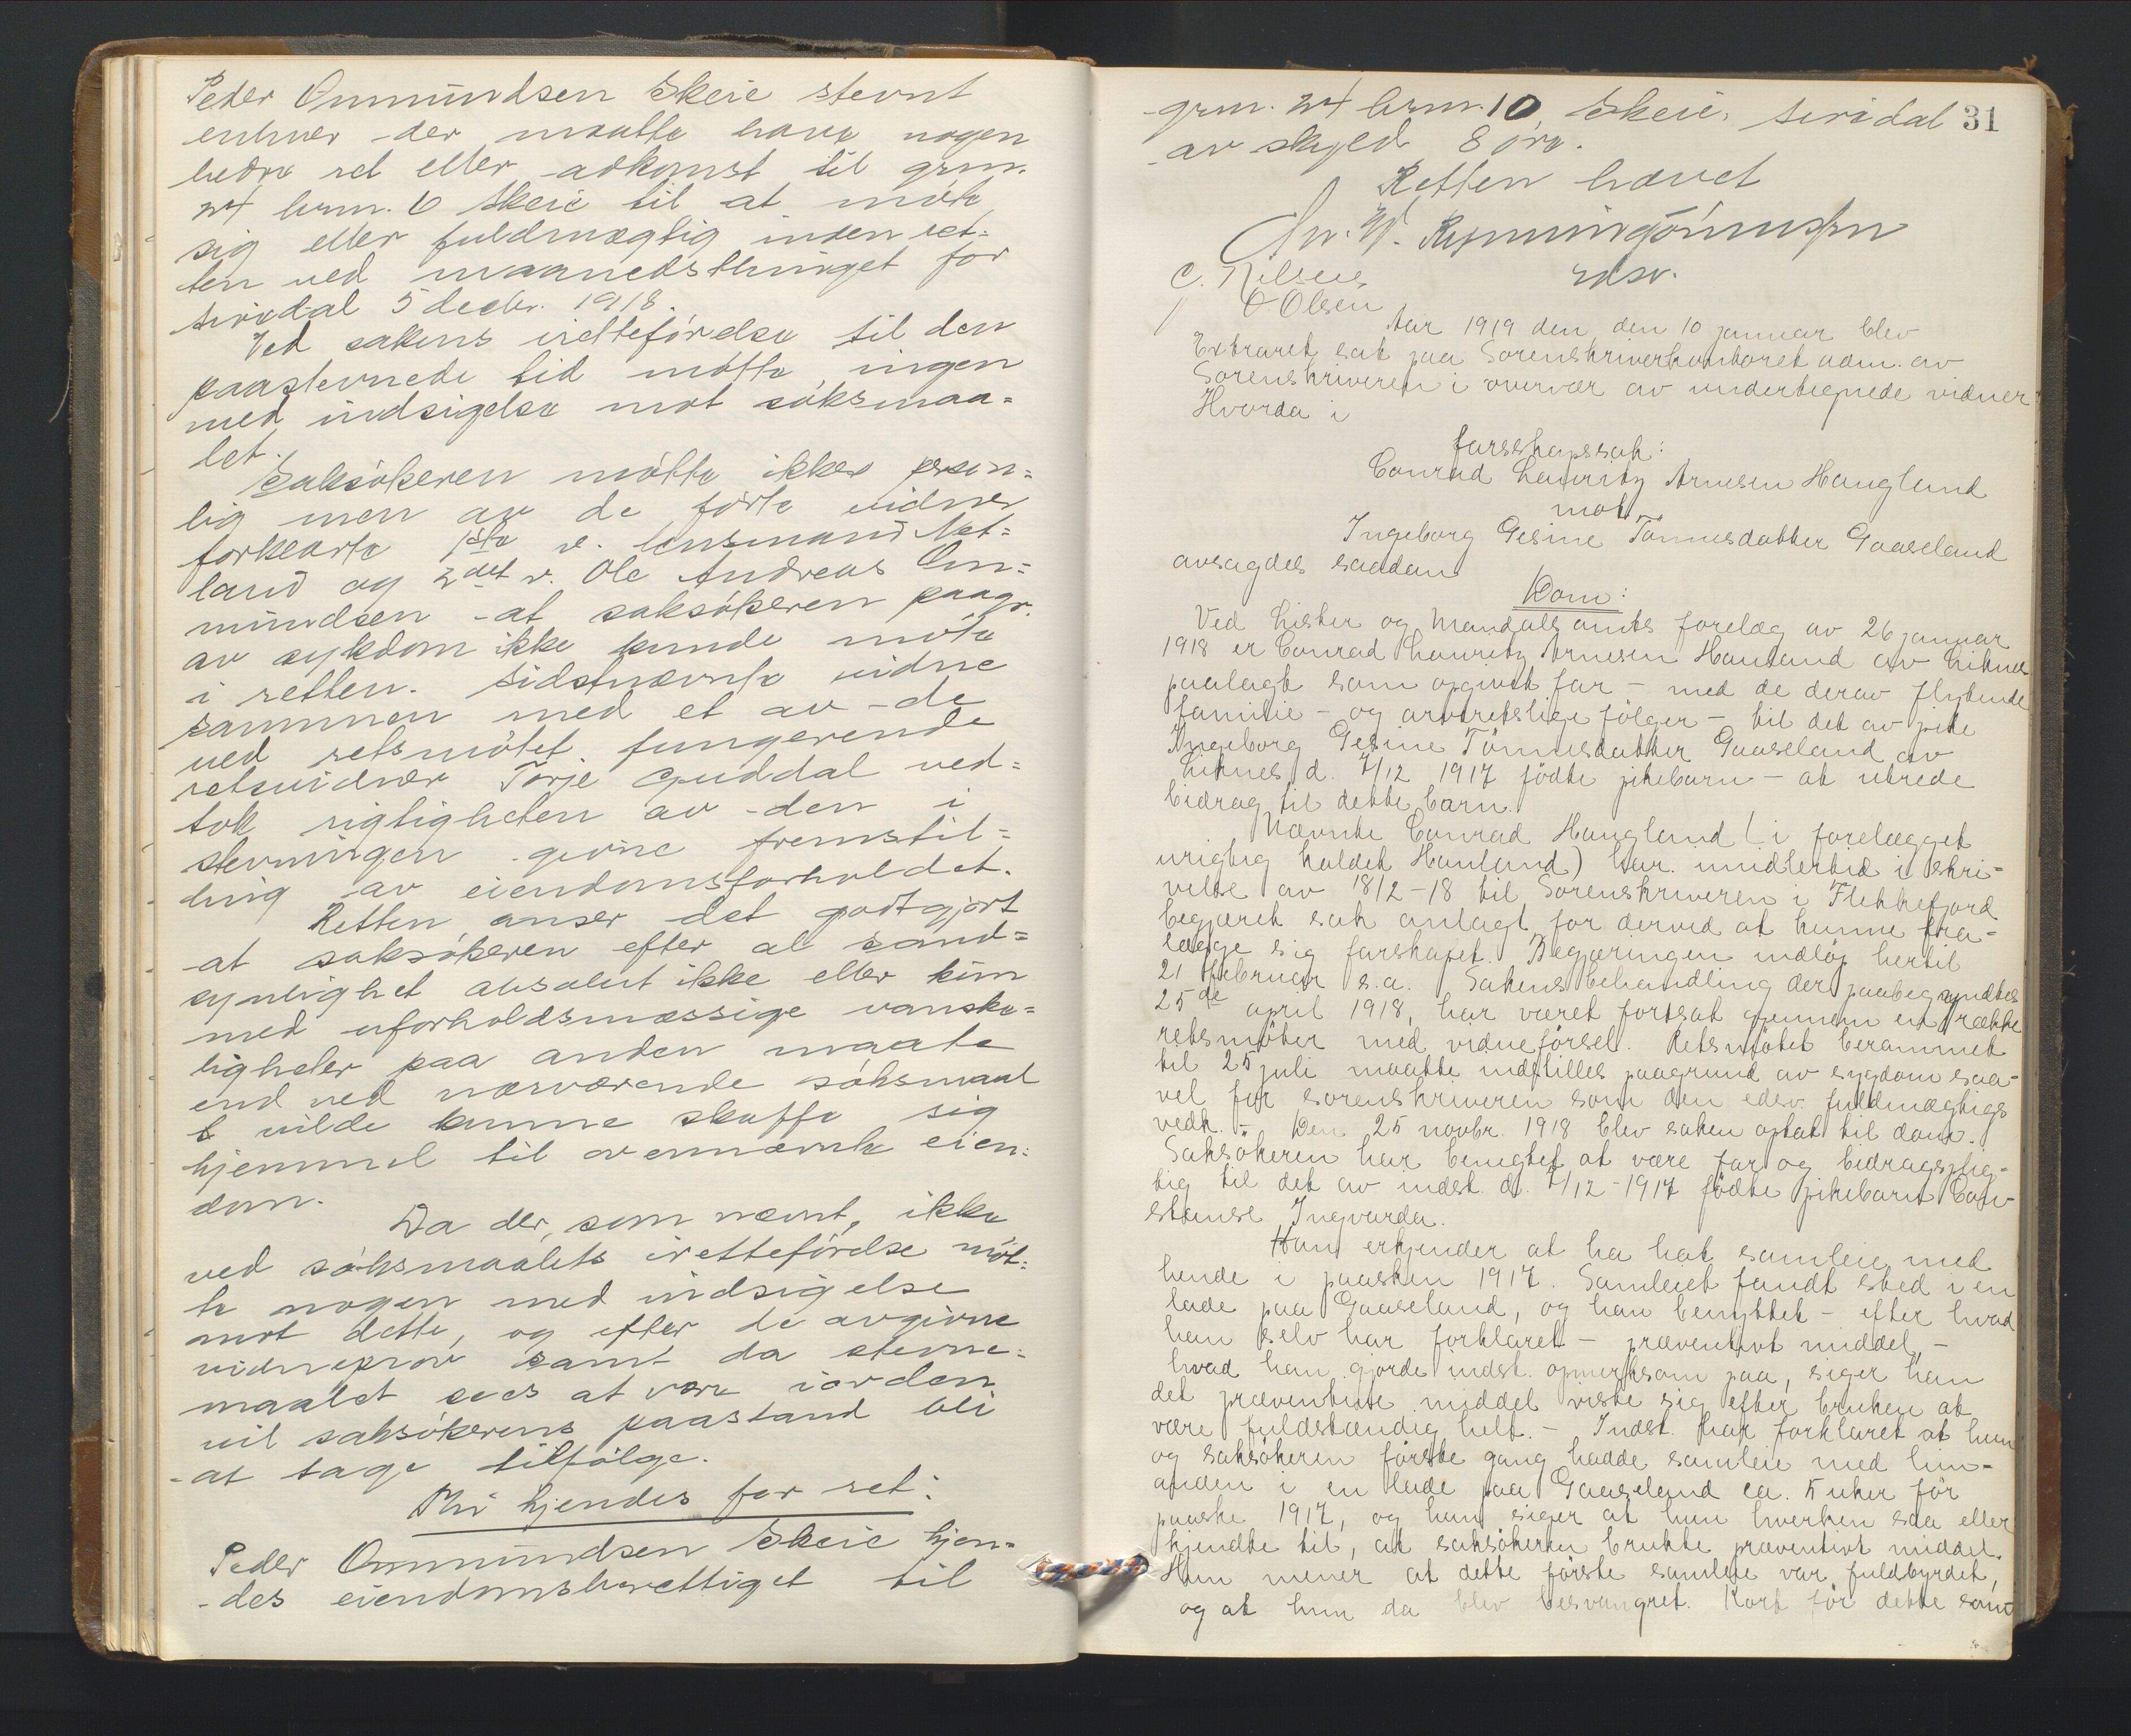 Peder Ommundsen Skeie stevnt
enhver der maatte have nogen
bedre ret eller adkomst til grnr.
24 brnr. 6 Skeie til at møte
sig eller fuldmægtig inden ret=
ten ved maanedsthinget for
Siredal 5 decbr. 1918.
Ved sakens iretteførelse til den
paastevnede tid møtte ingen
med indsigelse mot søksmaa=
let.
Saksøkeren møtte ikke person=
lig men av de førte vidner
forklarte 1ste v. lensmand Net=
land og 2det v. Ole Andreas Om=
mundsen at saksøkeren paagr.
av sykdom ikke kunde møte
i retten. Sidstnævnte vidne
sammen med et av de
ved retsmøtet fungerende
retsvidner Torje Guddal ved=
tok rigtigheten av den i
stevningen givne fremstil=
ling av eiendomsforholdet.
Retten anser det godtgjort
at saksøkeren efter al sand=
synlighet absolut ikke eller kun
med uforholdsmæssige vanske=
ligheter paa anden maate
end ved nærværende søksmaal
vilde kunne skaffe sig
hjemmel til ovennævnte eien=
dom.
Da der, som nævnt, ikke
ved søksmaalets iretteførelse møt=
te nogen med indsigelse
mot dette, og efter de avgivne
vidneprov samt da stevne=
maalet sees at være iorden
vil saksøkerens paastand bli
at tage tilfølge.
Thi kjendes for ret:
Peder Ommundsen Skeie kjen=
des eiendomsberettiget til
31
grnr. 24 brnr. 10, Skeie, Siredal
av skyld 8 øre.
Retten hævet
edsv.
C. Nilsen
O Olsen
Aar 1919 den, den 10 januar blev
Extraret sat paa Sorenskriverkontoret adm. av
Sorenskriveren i overvær av undertegnede vidner
Hvorda i
farskapssak:
Conrad Lauritz Arnesen Haugland
mot
Ingeborg Gesine Tønnesdatter Gaaseland
avsagdes saadan
Dom:
Ved Lister og Mandals amts forelæg av 26 januar
1918 er Conrad Lauritz Arnesen Hauland av Liknes
paalagt som opgivet far – med de derav flytende
familie- og arveretslige følger – til det av pike
Ingeborg Gesine Tønnesdatter Gaaseland av
Liknes d. 7/12 1917 fødte pikebarn – at utrede
bidrag til dette barn.
Nævnte Conrad Haugland (i forelægget
urigtig kaldet Hauland) har imidlertid i skri=
velse av 18/2-18 til Sorenskriveren i Flekkefjord
begjæret sak anlagt for derved at kunne fra=
lægge sig farskapet. Begjæringen indløp hertil
21 februar s.a. Sakens behandling der paabegyndtes
25de april 1918, har været fortsat gjennem en række
retsmøter med vidneførsel. Retsmøtet berammet
til 25 juli maatte indstilles paagrund av sygdom saa=
vel for sorenskriveren som den edsv. fuldmægtigs
vedk. – Den 25 novbr. 1918 blev saken optat til dom.
Saksøkeren har benegtet at være far og bidragsplig=
tig til det av indst. d. 7/12-1917 fødte pikebarn Con=
stanse Ingvarda.
Han erkjender at ha hat samleie med
hende i paasken 1917. Samleiet fandt sted i en
lade paa Gaaseland, og han benyttet – efter hvad
han selv har forklaret – præventivt middel, –
hvad han gjorde indst. opmerksom paa, siger han
det præventive middel viste sig efter bruken at
være fuldstændig helt. – Indst. har forklaret at hun
og saksøkeren første gang hadde samleie med hin=
anden i en lade paa Gaaseland ca. 5 uker før
paaske 1917, og hun siger at hun hverken saa eller
kjendte til, at saksøkeren brukte præventivt middel.
Hun mener at dette første samleie var fuldbyrdet,
og at hun da blev besvangret. Kort før dette sam